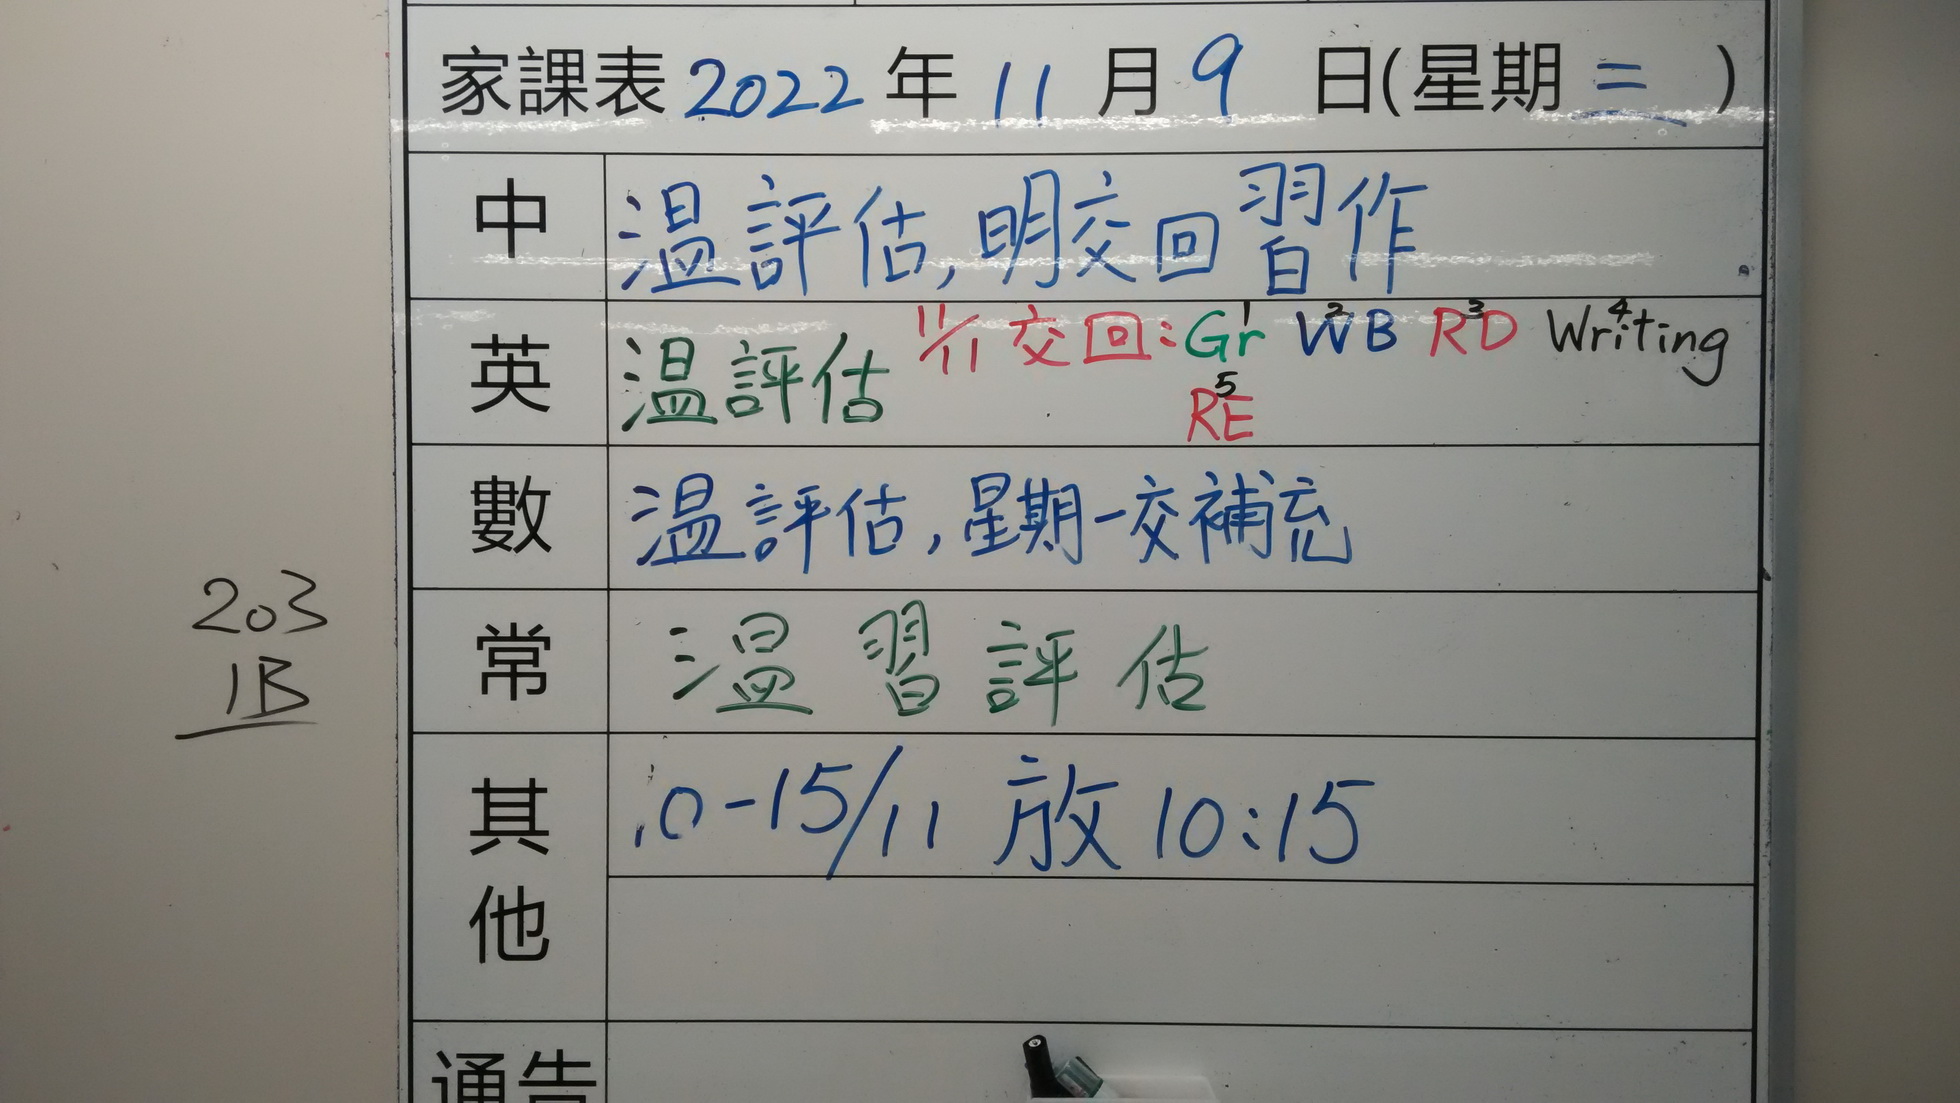 家課表 2022 年 11 月 9 日(星期 三 )
中 温評估,明交回習作
英 温評估 11/11 交回: Gr 1 WB 2 RD 3 Writing 4
RE 5
數 温評估,星期一交補充
常 温習評估
其他 10-15/11 放 10:15
通告
203
1B